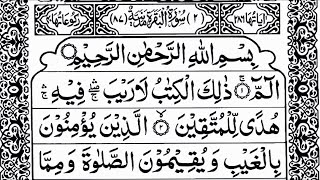 اٰیَاتُهَا ٢٨٦ (٢) سُوْرَةُ الْبَقَرَةِ مَدَنِیَّةٌ (٨٧) رُكُوْعَاتُهَا
بِسْمِ اللّٰهِ الرَّحْمٰنِ الرَّحِیْمِ
الٓمّٓ ۚ﴿۱﴾ ذٰلِكَ الْكِتٰبُ لَا رَیْبَ ۛۖۚ فِیْهِ ۛۚ
هُدًی لِّلْمُتَّقِیْنَ ۙ﴿۲﴾ الَّذِیْنَ یُؤْمِنُوْنَ
بِالْغَیْبِ وَ یُقِیْمُوْنَ الصَّلٰوةَ وَ مِمَّا